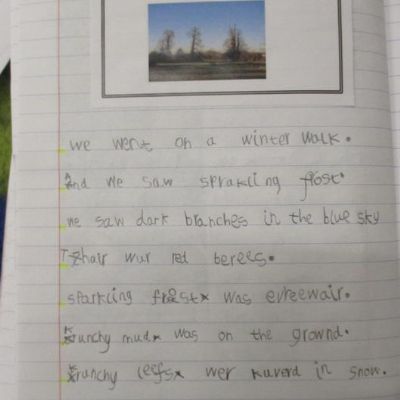 we went on a winter walk.
And we saw sprakling frost.
we saw dark branches in the blue sky
Thair wur red berees.
sparkling frost was evreewair.
krunchy mud was on the grownd.
krunchy leefs wer kuverd in snow.